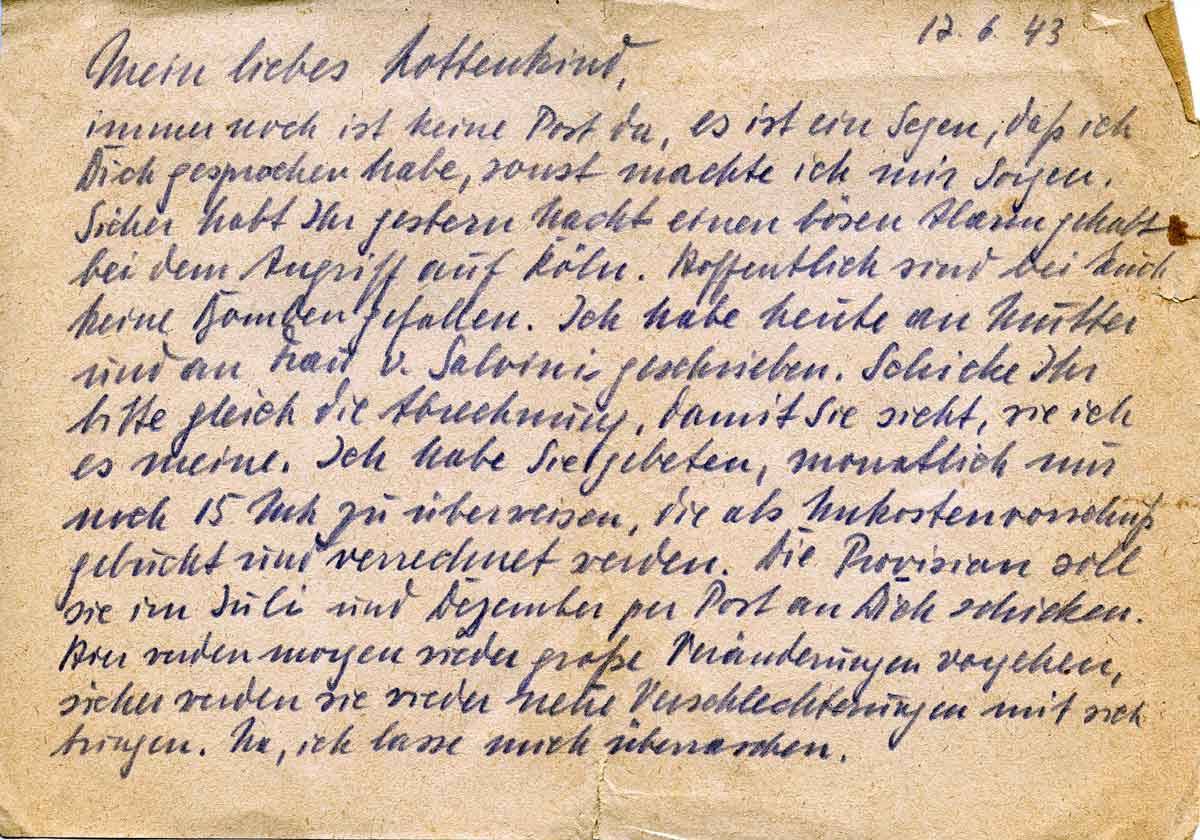 17. 6. 43
Mein liebes Lottenkind,
immer noch ist keine Post da, es ist ein Segen, daß ich
Dich gesprochen habe, sonst machte ich mir Sorgen.
Sicher habt Ihr gestern Nacht einen bösen Alarm gehabt
bei dem Angriff auf Köln. Hoffentlich sind bei Euch
keine Bomben gefallen. Ich habe heute an Mutter
und an Frau v. Salvini geschrieben. Schicke Ihr
bitte gleich die Abrechnung, damit Sie sieht, wie ich
es meine. Ich habe Sie gebeten, monatlich nur
noch 15 Mk zu überweisen, die als Unkostenvorschuß
gebucht und verrechnet werden. Die Provision soll
sie im Juli und Dezember per Post an Dich schicken.
Hier werden morgen wieder große Veränderungen vorgehen,
sicher werden sie wieder neue Verschlechterungen mit sich
bringen. Na, ich lasse mich überraschen.